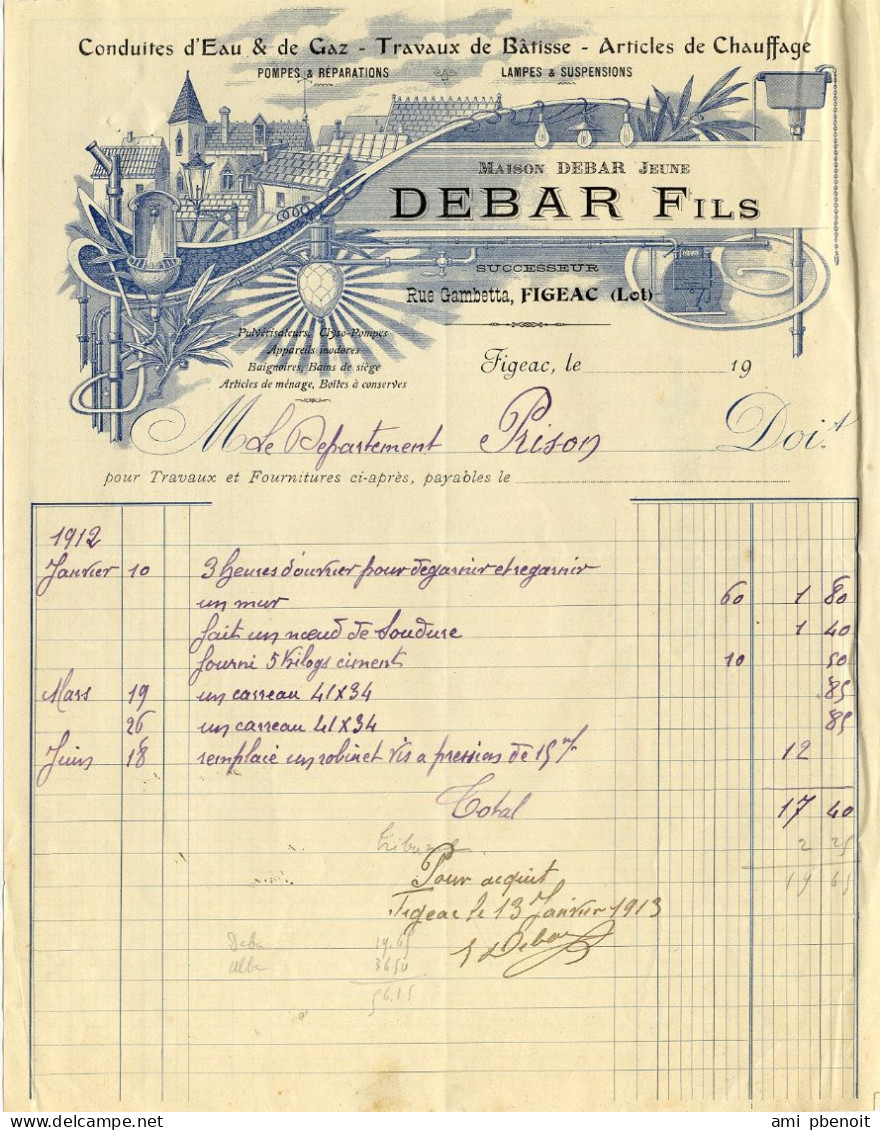 Conduites d'Eau & de Gaz - Travaux de Bâtisse - Articles de Chauffage
POMPES & RÉPARATIONS LAMPES & SUSPENSIONS
MAISON DEBAR JEUNE
DEBAR FILS
SUCCESSEUR
Rue Gambetta, FIGEAC (Lot)
Pulvérisateurs, Clyso-Pompes
Appareils inodores
Baignoires, Bains de siège
Articles de ménage, Boîtes à conserves
Figeac, le 19
M Le Departement Prison Doit
pour Travaux et Fournitures ci-après, payables le
1912
Janvier 10 3 heures d'ouvrier pour degarnir et regarnir
un mur 60 1 80
fait un nœud de soudure 1 40
fourni 5 kilogs ciment 10 50
Mars 19 un carreau 41x34 85
26 un carreau 41x34 85
Juin 18 remplacé un robinet vis a pression de 15 m/ 12
Total 17 40
2 25
Pour acquit 19 65
Figeac le 13 Janvier 1913
Debar
Deba 19.65
Albe 36 50
56.15
ami pbenoit